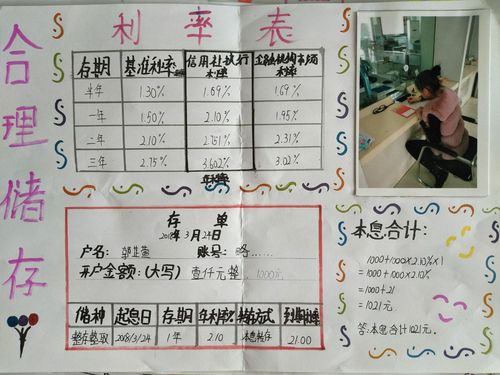 合理储存
利率表
存期 基准利率 信用社执行利率 金融机构市场利率
半年 1.30% 1.69% 1.69%
一年 1.50% 2.10% 1.95%
二年 2.10% 2.751% 2.31%
三年 2.75% 3.602% 3.02%
存单
2018年3月24日
户名: 账号: 略……
开户金额:(大写) 壹仟元整 1000元
储种 起息日 存期 年利率% 方式 到期
整存整取 2018/3/24 1年 2.10 本息转存 21.00
本息合计:
1000+1000×2.10%×1
=1000+1000×2.10%
=1000+21
=1021元
答:本息合计1021元。